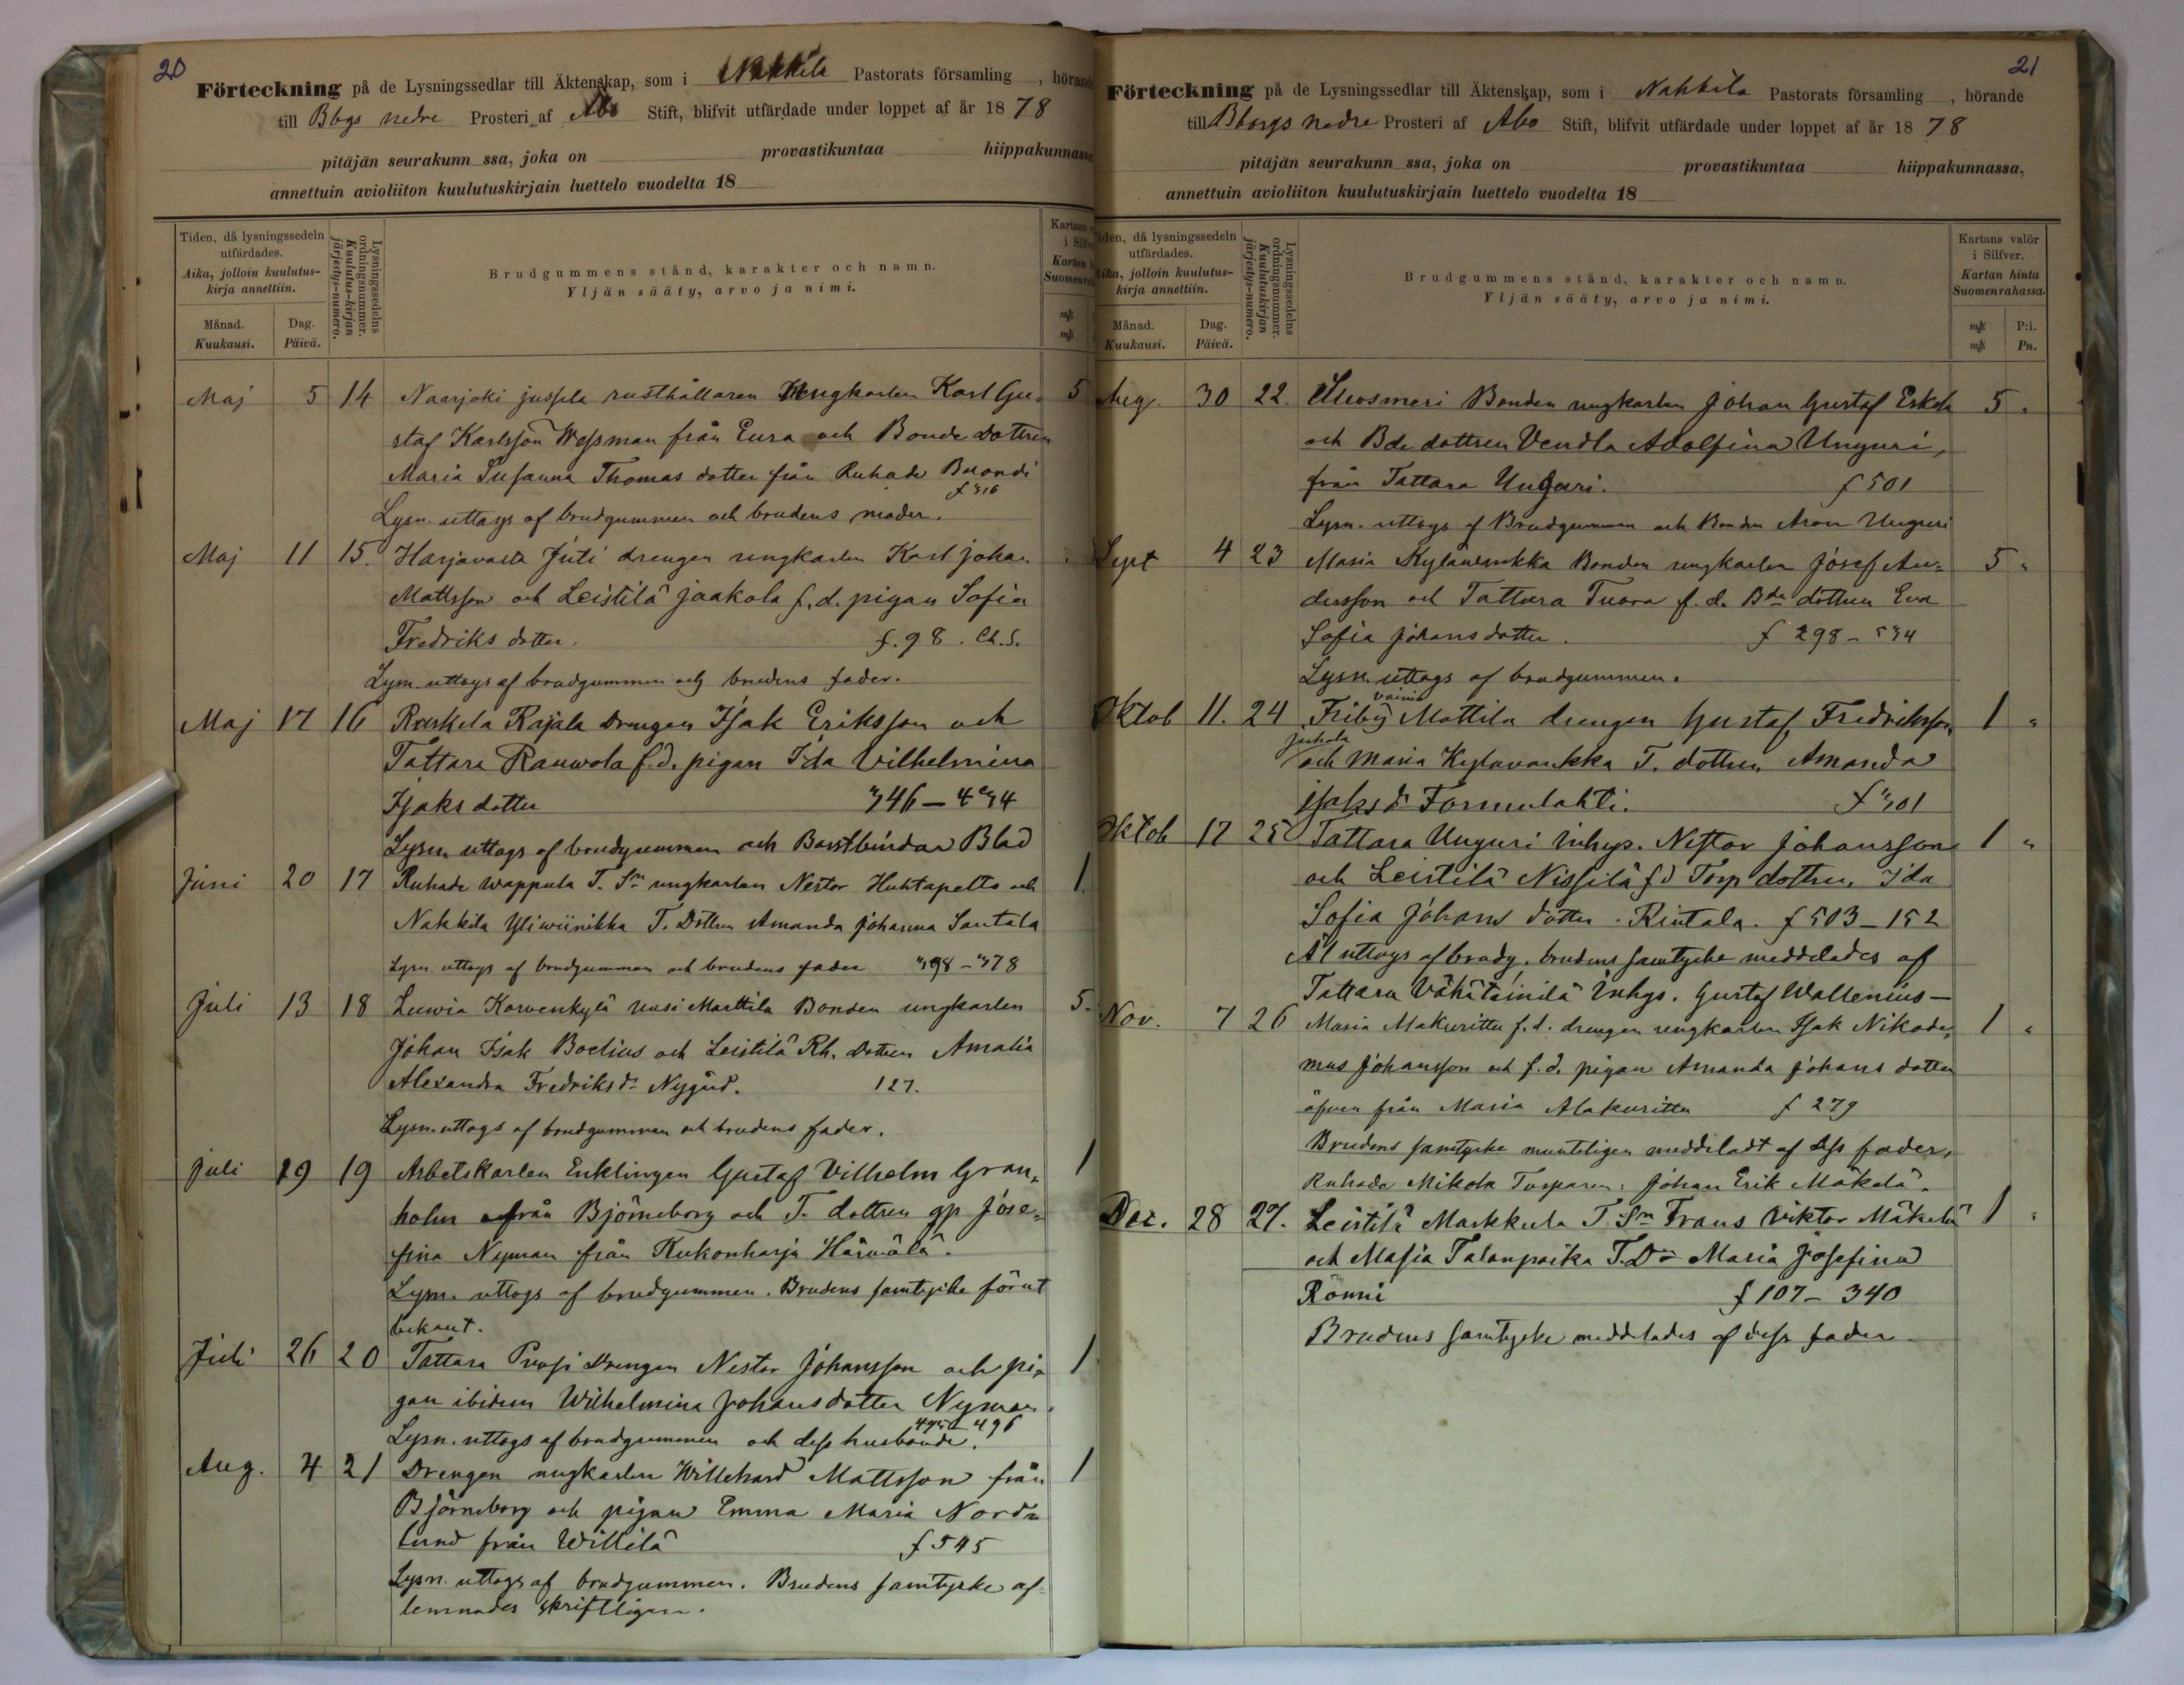 20
Förteckning på de Lysningssedlar till Äktenskap, som i Nakkila Pastorats församling , hörande
till Bbgs nedre Prosteri af Åbo Stift, blifvit utfärdade under loppet af år 1878
pitäjän seurakunn ssa, joka on provastikuntaa hiippakunnassa
annettuin avioliiton kuulutuskirjain luettelo vuodelta 18
Tiden, då lysningssedeln utfärdades.
Aika, jolloin kuulutuskirja annettiin.
Månad. Kuukausi.
Dag. Päivä.
Lysningssedelns ordningsnummer.
Kuulutus-kirjan järjestys-numero.
Brudgummens stånd, karakter och namn.
Yljän sääty, arvo ja nimi.
Kartans
i Silfv
Kartan
Suomenra
mk
mk
Maj 5 14 Naarjoki jussila rusthållaren ungkarlen Karl Gu- 5
staf Karlsson Wessman från Eura och Bonde dottren
Maria Susanna Thomas dotter från Ruhade Buondi
Lysn. uttogs af brudgummen och brudens moder.
Maj 11 15. Harjavalta Juti drengen ungkarlen Karl Johan
Mattsson och Leistilä Jaakola f.d. pigan Sofia
Fredriks dotter. f. 98.
Lysn. uttogs af brudgummen och brudens fader.
Maj 17 16 Ruskela Rajala Drengen Isak Eriksson och
Tattara Rauwola f.d. pigan Ida Vilhelmina
Isaks dotter
Lysn. uttogs af brudgummen och Borstbindar Blad
Juni 20 17 Ruhade Wappula T. Sn ungkarlen Nestor Huhtapelto och 1.
Nakkila Yliwiinikka T. Dottren Amanda Johanna Santala
Lysn. uttogs af brudgummen och brudens fader
Juli 13 18 Luwia Korwenkylä uusi Marttila Bonden ungkarlen 5.
Johan Isak Boelius och Leistilä Rh. Dottren Amalia
Alexandra Fredriksdr Nygård. 127.
Lysn. uttogs af brudgummen och brudens fader.
Juli 19 19 Arbetskarlen Enklingen Gustaf Vilhelm Gran- 1
holm från Björneborg och T. dottren gp Jose-
fina Nyman från Kukonharja Härmälä.
Lysn. uttogs af brudgummen. Brudens samtycke förut
bekant.
Juli 26 20 Tattara Prusi Drengen Nestor Johansson och pi- 1
gan ibidem Wilhelmina Johansdotter Nyman.
Lysn. uttogs af brudgummen och dess husbonde. 496
Aug. 4 21 Drengen ungkarlen Willehard Mattsson från 1
Björneborg och pigan Emma Maria Nord-
lund från Willilä f 545
Lysn. uttogs af brudgummen. Brudens samtycke af-
lemnades skriftligen.
21
Förteckning på de Lysningssedlar till Äktenskap, som i Nakkila Pastorats församling , hörande
till Bborgs nedre Prosteri af Åbo Stift, blifvit utfärdade under loppet af år 1878
pitäjän seurakunn ssa, joka on provastikuntaa hiippakunnassa,
annettuin avioliiton kuulutuskirjain luettelo vuodelta 18
Tiden, då lysningssedeln utfärdades.
Aika, jolloin kuulutuskirja annettiin.
Månad. Kuukausi.
Dag. Päivä.
Lysningssedelns ordningsnummer.
Kuulutuskirjan järjestys-numero.
Brudgummens stånd, karakter och namn.
Yljän sääty, arvo ja nimi.
Kartans valör i Silfver.
Kartan hinta Suomenrahassa.
mk P:i.
mk Pn.
Aug. 30 22. Suosmeri Bonden ungkarlen Johan Gustaf Eskola 5 "
och Bde dottren Vendla Adolfina Unguri,
från Tattara Unguri. f 501
Lysn. uttogs af Brudgummen och Bonden Aron Unguri
Sept 4 23 Masia Kylänvankka Bonden ungkarlen Josef An- 5 "
dersson och Tattara Tuora f.d. Bde dottren Eva
Sofia Johansdotter. f 298 -
Lysn. uttogs af brudgummen.
Oktob 11. 24 Friby Mattila drengen Gustaf Fredriksson, 1 "
vainio
och Masia Kylavankka T. dottren Amanda
Isaksdr Formulahti.
Oktob 17 25 Tattara Unguri inhys. Nestor Johansson 1 "
och Leistilä Nissilä fd Torp dottren Ida
Sofia Johans dotter Rintala. f 503 - 152
Al uttogs af brudg. brudens samtycke meddelades af
Tattara Vähätäinilä Inhys. Gustaf Wallenius—
Nov. 7 26 Masia Makuritta f.d. drengen ungkarlen Isak Nikode- 1 "
mus Johansson och f.d. pigan Amanda Johans dotter
äfven från Masia Alakuritta f 279
Brudens samtycke munteligen meddeladt af dess fader,
Ruhade Mikola Torparen: Johan Erik Mäkelä.
Dec. 28 27. Leistilä Markkula T. Sn Frans Viktor Mäkelä 1 "
och Masia Talanpoika T.Dr Maria Josefina
Römni f 107 - 340
Brudens samtycke meddelades af dess fader.